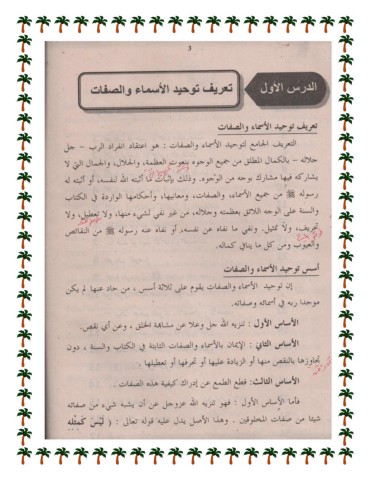 3
الدرس الأول
تعريف توحيد الأسماء والصفات
تعريف توحيد الأسماء والصفات
التعريف الجامع لتوحيد الأسماء والصفات : هو اعتقاد انفراد الرب – جل
جلاله – بالكمال المطلق من جميع الوجوه بنعوت العظمة، والجلال، والجمال التي لا
يشاركه فيها مشارك بوجه من الوجوه. وذلك بإثبات ما أثبته الله لنفسه، أو أثبته له
رسوله ﷺ من جميع الأسماء، والصفات، ومعانيها، وأحكامها الواردة في الكتاب
والسنة على الوجه اللائق بعظمته وجلاله، من غير نفي لشيء منها، ولا تعطيل، ولا
تحريف، ولا تمثيل. ونفي ما نفاه عن نفسه، أو نفاه عنه رسوله ﷺ من النقائص
والعيوب ومن كل ما ينافي كماله.
أسس توحيد الأسماء والصفات
إن توحيد الأسماء والصفات يقوم على ثلاثة أسس ، من حاد عنها لم يكن
موحدا ربه في أسمائه وصفاته.
الأساس الأول : تنزيه الله جل وعلا عن مشابهة الخلق ، وعن أي نقص.
الأساس الثاني : الإيمان بالأسماء والصفات الثابتة في الكتاب والسنة ، دون
تجاوزها بالنقص منها أو الزيادة عليها أو تحرفها أو تعطيلها .
الأساس الثالث: قطع الطمع عن إدراك كيفية هذه الصفات .
فأما الأساس الأول : فهو تنزيه الله عزوجل عن أن يشبه شيء من صفاته
شيئا من صفات المخلوقين . وهذا الأصل يدل عليه قوله تعالى : ( لَيْسَ كَمِثْلِهِ